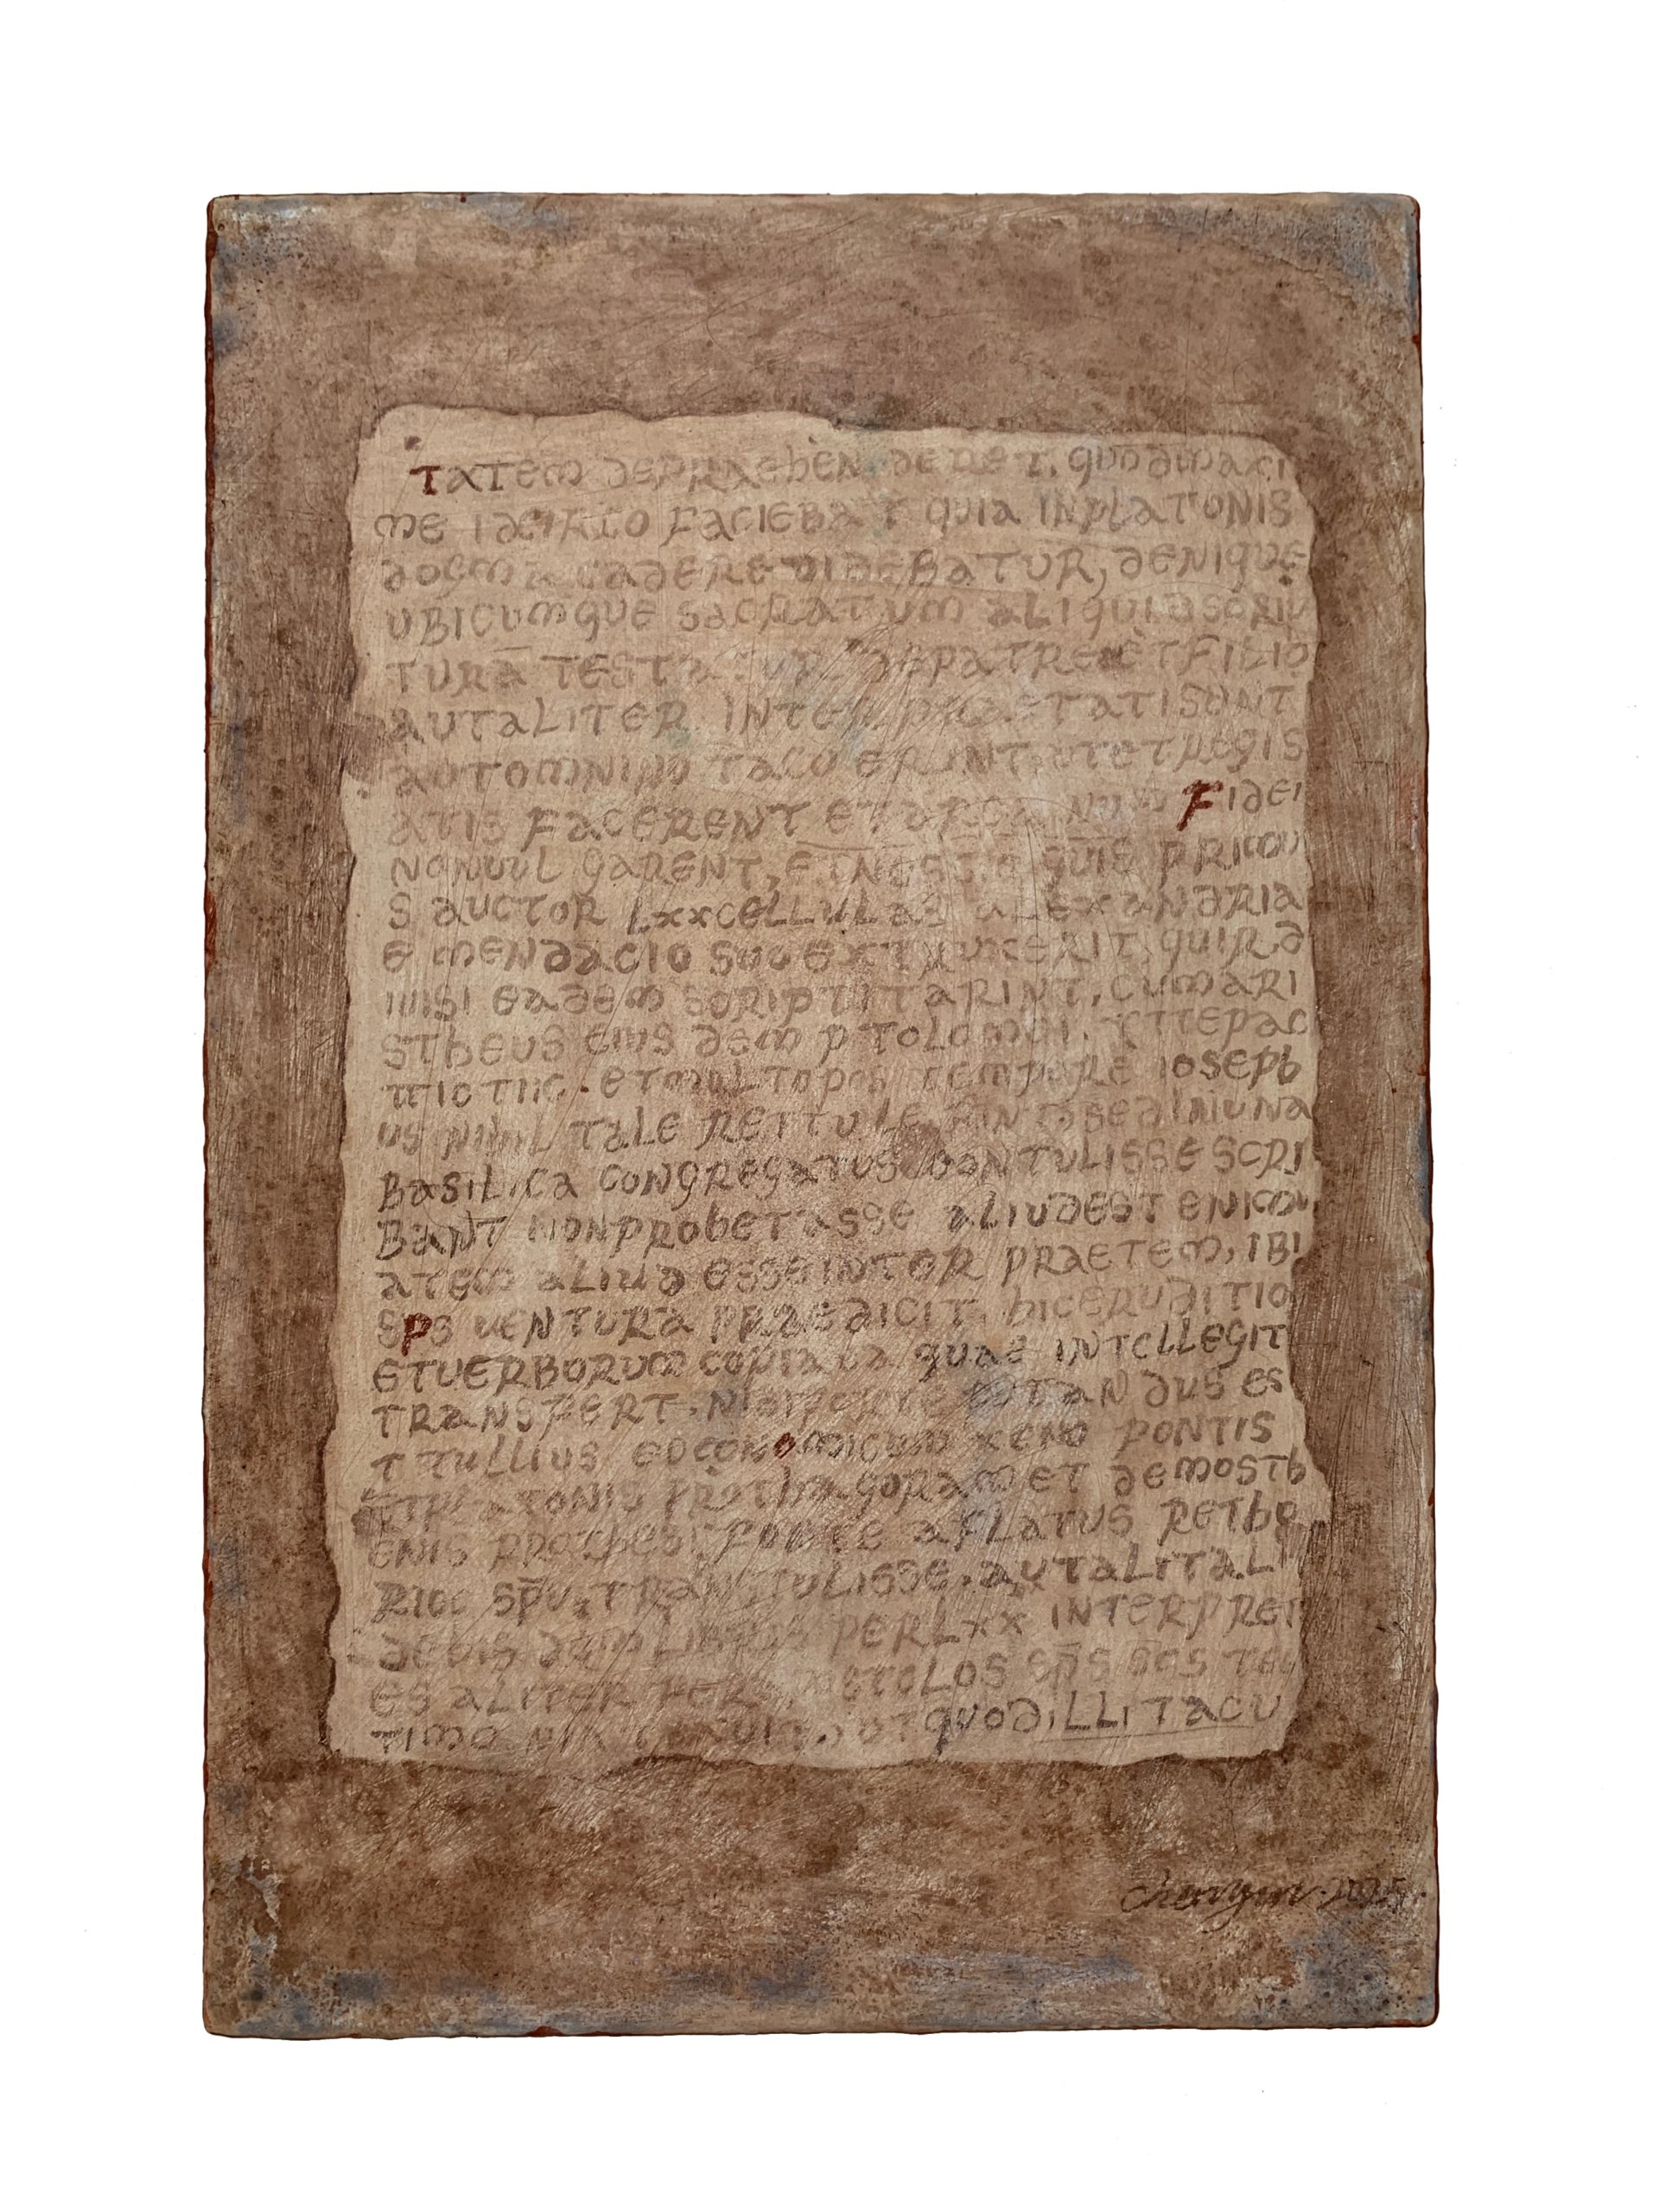 TATEM DEPRAEHEN DERET, QUODMAXI
ME IACIRCO FACIEBAT QUIA INPLATONIS
DOGMA CADERE VIDEBATUR, DENIQUE
UBICUMQUE SACRATUM ALIQUID SCRIU
TURA TESTATUR DEPATRE ET FILIO
AUTALITER INTERPRAETATISUNT
AUTOMNINO TACUERUNT, UTET REGIS
ATIS FACERENT ETARCANUM FIDEI
NONUUL GARENT, ETNESCIO QUIS PRIMU
S AUCTOR LXXCELLULAS ALEXANDRIA
E MENDACIO SUO EXTRUXERIT, QUIB D
IUISI EADEM SCRIPTITARINT, CUMARI
STHEUS EIUS DEM PTOLOMEI.
ETMULTOPOS TEMPORE IOSEPH
US NIHIL TALE RETTULERINT, SEDINUNA
BASILICA CONGREGATUS CONTULISSE SCRI
BANT NONPROBETASSE ALIUDEST ENIMU
ATEM ALIUD ESSEINTER PRAETEM, IBI
SPS UENTURA PRAEDICIT, HICERUDITIO
ETUERBORUM COPIA EA QUAE INTELLEGIT
TRANSFERT, NISIFORTE PUTANDUS ES
T TULLIUS EOCONOMICUM XENO PONTIS
ETPLATONIS PROTHAGORAM ET DEMOSTH
ENIS PROTHESI FONTE AFLATUS RETHO
RICO SPU, TRANSTULISSE, AUTALITALI
DEHIS DEM LIBROS PERLXX INTERPRET
ES ALITER PER APOSTOLOS SP̄S SCS TES
TIMO NIA TEXUIT, UT QUODILLITACU
chenyun. 2025.